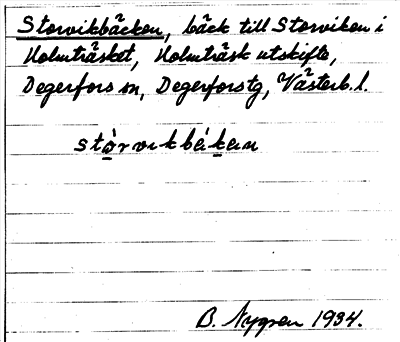 Storvikbäcken, bäck till Storviken i
Holmträsket, Holmträsk utskifte,
Degerfors sn, Degerforstg, Västerb. l.
stòrvikbékan
B. Nygren 1934.